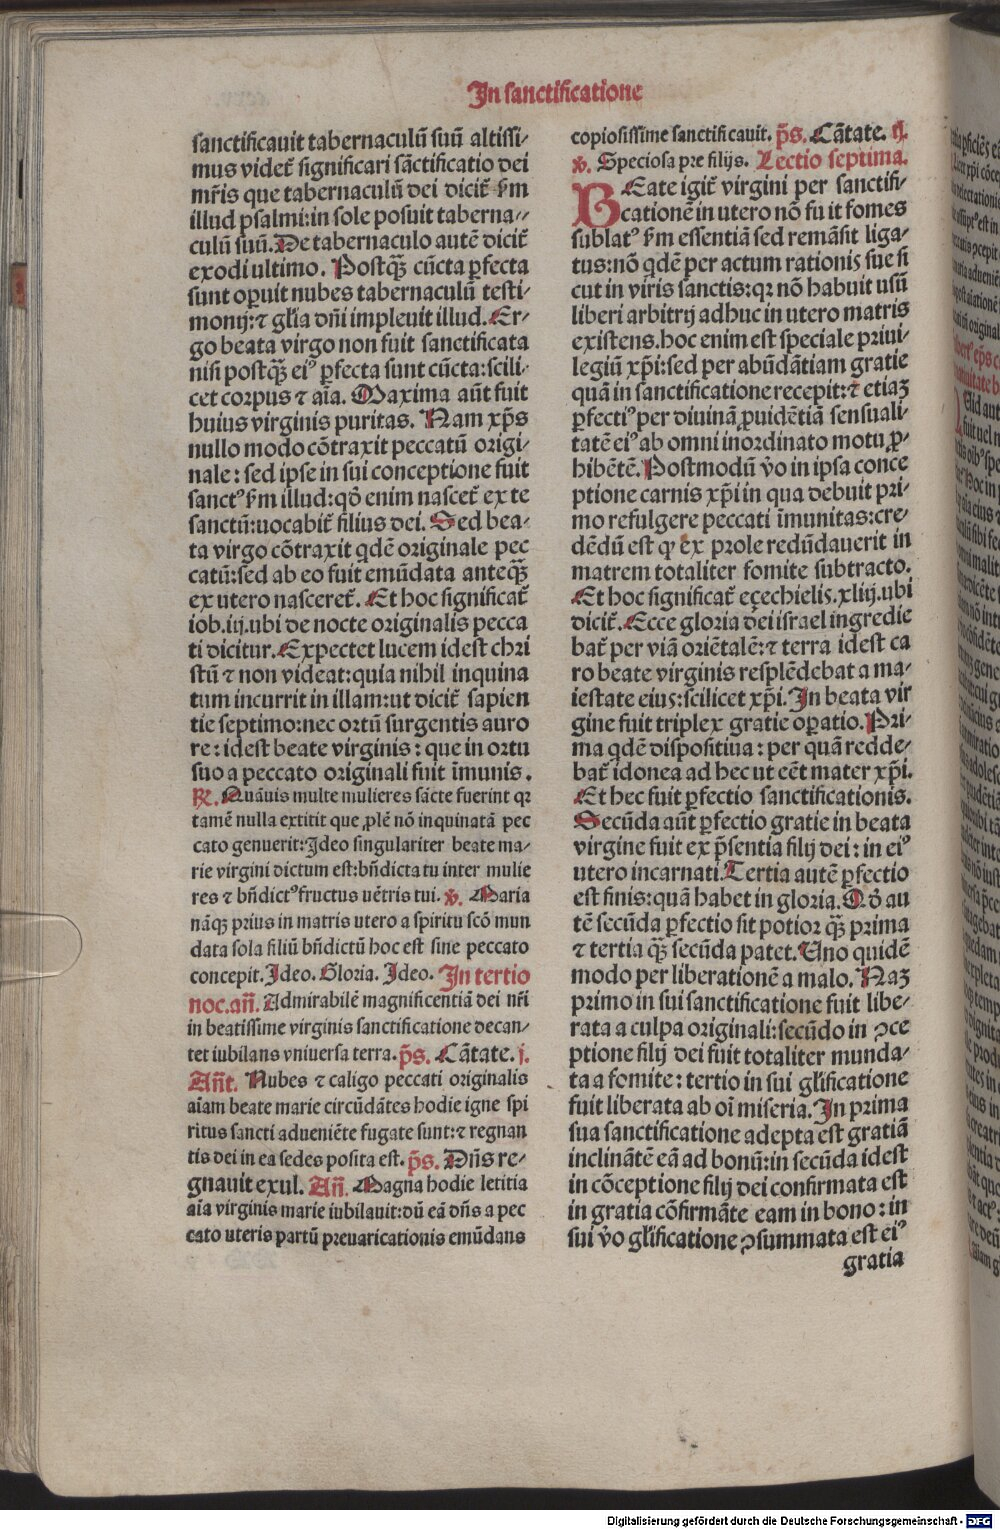 In sanctificatione
sanctificauit tabernaculū suū altissi-
mus videt᷑ significari sāctificatio dei
mr̄is que tabernaculū dei dicit᷑ ẜm
illud psalmi:in sole posuit taberna-
culū suū. De tabernaculo autē dicit᷑
exodi ultimo. Postqꝫ cūcta ꝑfecta
sunt oꝑuit nubes tabernaculū testi-
monij:⁊ gl̄ia dn̄i impleuit illud. Er-
go beata virgo non fuit sanctificata
nisi postqꝫ eiꝰ ꝑfecta sunt cūcta:scili-
cet corpus ⁊ aīa. Maxima aūt fuit
huius virginis puritas. Nam xp̄s
nullo modo cōtraxit peccatū origi-
nale: sed ipse in sui conceptione fuit
sanctꝰ ẜm illud:qd̓ enim nascet᷑ ex te
sanctū:uocabit᷑ filius dei. Sed bea-
ta virgo cōtraxit qdē originale pec
catū:sed ab eo fuit emūdata anteqꝫ
ex utero nasceret᷑. Et hoc significat᷑
iob.iij.ubi de nocte originalis pecca
ti dicitur. Expectet lucem idest chri
stū ⁊ non videat:quia nihil inquina
tum incurrit in illam:ut dicit᷑ sapien
tie septimo:nec ortū surgentis auro
re: idest beate virginis: que in ortu
suo a peccato originali fuit īmunis.
℞. Quāuis multe mulieres sācte fuerint qꝛ
tamē nulla extitit que ꝓlē nō inquinatā pec
cato genuerit:Ideo singulariter beate ma-
rie virgini dictum est:bn̄dicta tu inter mulie
res ⁊ bn̄dictꝰ fructus uētris tui. ℣. Maria
nāqꝫ prius in matris utero a spiritu scō mun
data sola filiū bn̄dictū hoc est sine peccato
concepit. Ideo. Gloria. Ideo. In tertio
noc. an̄. Admirabilē magnificentiā dei nr̄i
in beatissime virginis sanctificatione decan-
tet iubilans vniuersa terra. p̄s. Cātate. j.
Ant̄. Nubes ⁊ caligo peccati originalis
aīam beate marie circūdātes hodie igne spi
ritus sancti adueniēte fugate sunt:⁊ regnan
tis dei in ea sedes posita est. p̄s. Dn̄s re-
gnauit exul. An̄. Magna hodie letitia
aīa virginis marie iubilauit:dū eā dn̄s a pec
cato uteris partū preuaricationis emūdans
copiosissime sanctificauit. p̄s. Cātate. ij.
℣. Speciosa pre filijs. Lectio septima.
BEate igit᷑ virgini per sanctifi-
cationē in utero nō fuit fomes
sublatꝰ ẜm essentiā sed remāsit liga-
tus:nō qdē per actum rationis sue si
cut in viris sanctis:qꝛ nō habuit usū
liberi arbitrij adhuc in utero matris
existens.hoc enim est speciale priui-
legiū xp̄i:sed per abūdātiam gratie
quā in sanctificatione recepit:⁊ etiaꝫ
ꝑfectiꝰ per diuinā ꝓuidētiā sensuali-
tatē eiꝰ ab omni inordinato motu ꝓ-
hibētē. Postmodū v̓o in ipsa conce
ptione carnis xp̄i in qua debuit pri-
mo refulgere peccati īmunitas:cre-
dēdū est qꝙ ex prole redūdauerit in
matrem totaliter fomite subtracto.
Et hoc significat᷑ eçechielis.xliij.ubi
dicit᷑. Ecce gloria dei israel ingredie
bat᷑ per viā oriētalē:⁊ terra idest ca
ro beate virginis resplēdebat a ma-
iestate eius:scilicet xp̄i. In beata vir
gine fuit triplex gratie oꝑatio. Pri-
ma qdē dispositiua: per quā redde-
bat᷑ idonea ad hec ut eēt mater xp̄i.
Et hec fuit ꝑfectio sanctificationis.
Secūda aūt ꝑfectio gratie in beata
virgine fuit ex p̄sentia filij dei: in eiꝰ
utero incarnati. Tertia autē ꝑfectio
est finis:quā habet in gloria. Qd̓ au
tē secūda ꝑfectio sit potior qꝫ prima
⁊ tertia qꝫ secūda patet. Uno quidē
modo per liberationē a malo. Naꝫ
primo in sui sanctificatione fuit libe-
rata a culpa originali:secūdo in ꝯce
ptione filij dei fuit totaliter munda-
ta a fomite: tertio in sui gl̄ificatione
fuit liberata ab oī miseria. In prima
sua sanctificatione adepta est gratiā
inclinātē eā ad bonū:in secūda idest
in cōceptione filij dei confirmata est
in gratia cōfirmāte eam in bono: in
sui v̓o gl̄ificatione ꝯsummata est eiꝰ
gratia
Digitalisierung gefördert durch die Deutsche Forschungsgemeinschaft - DFG